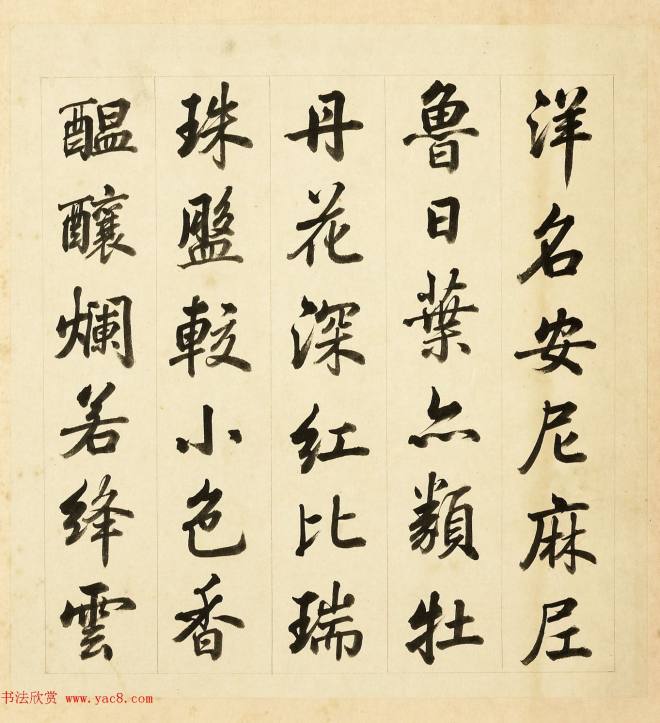 洋名安尼麻尼
魯日葉亦類牡
丹花深紅比瑞
珠盤較小色香
醖釀爛若絳雲
书法欣赏 www.yac8.com